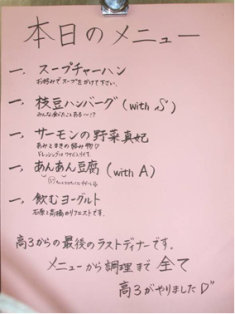 本日のメニュー
一、スープチャーハン
お好みでスープをかけて下さい。
一、枝豆ハンバーグ(with
一、サーモンの野菜真妃
一、あんあん豆腐(with A)
一、飲むヨーグルト
石原と高橋のリクエストです。
高3からの最後のラストディナーです。
メニューから調理まで全て
高3がやりました